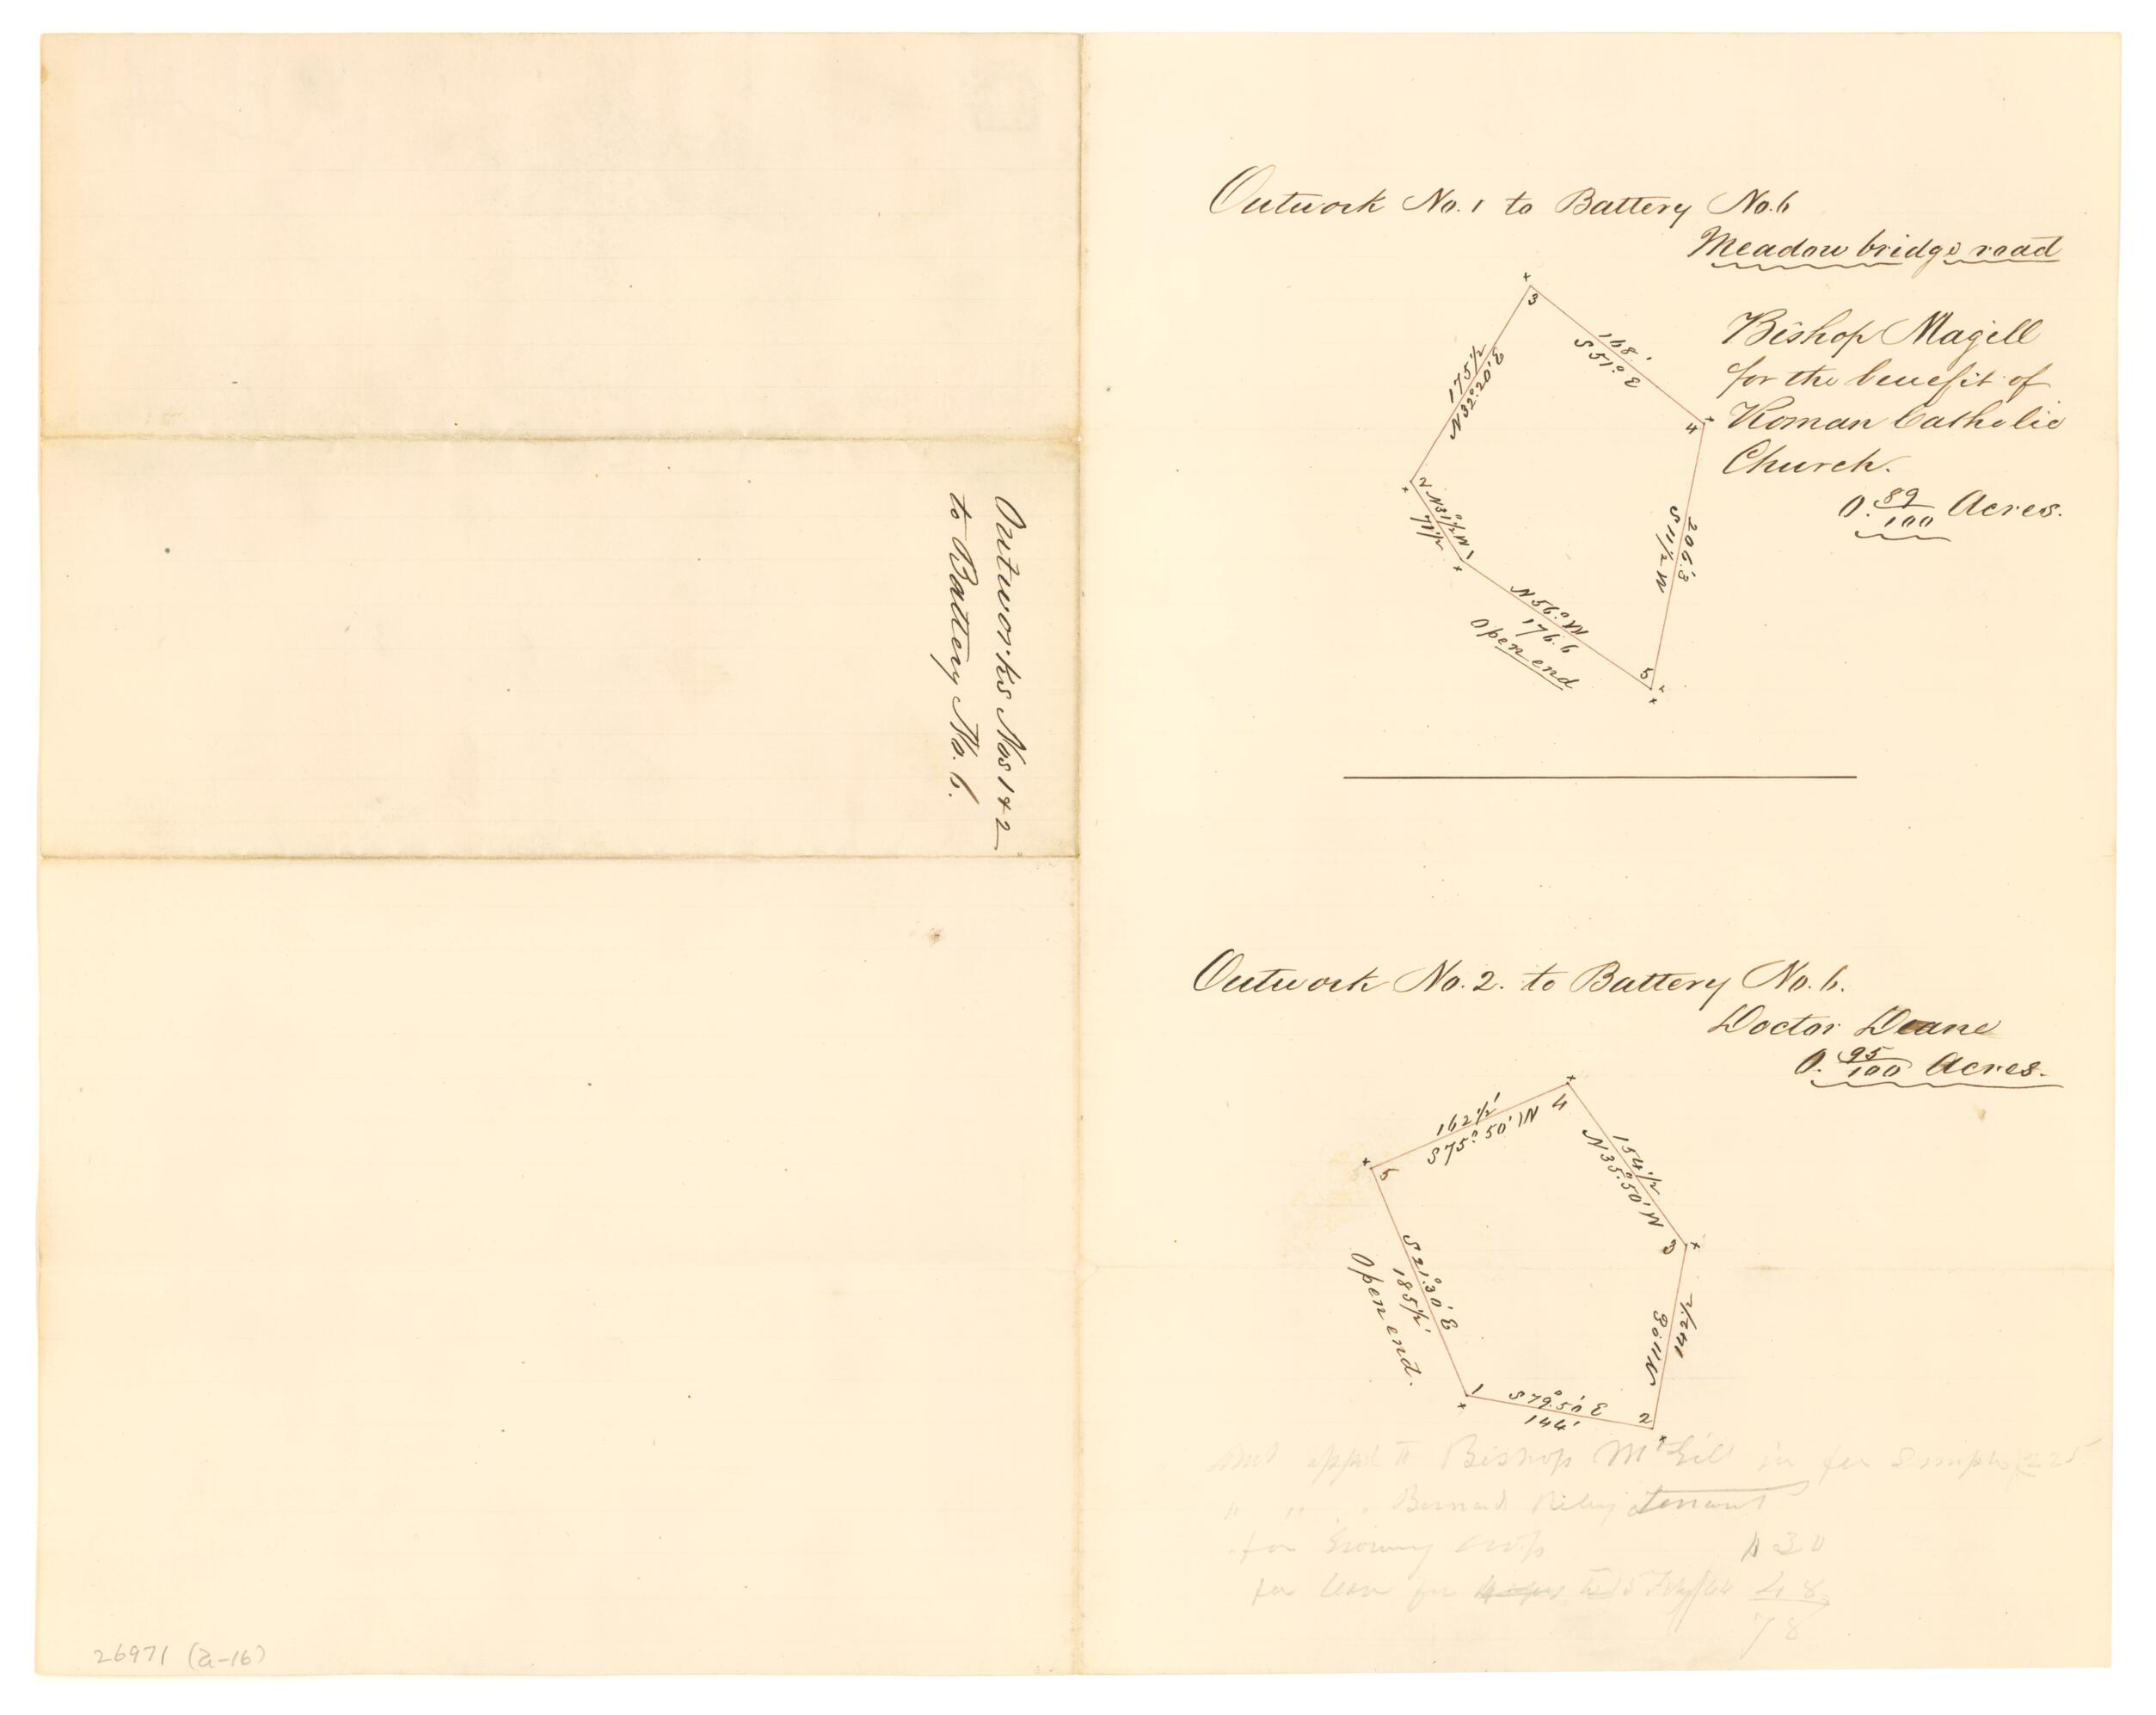 Outworks Nos 1 & 2
to Battery No. 6.
26971 (a-16)
Outwork No. 1 to Battery No. 6
Meadow bridge road
Bishop Magill
for the benefit of
Roman Catholic
Church.
0. 89/100 Acres.
3
168'
S 51° E
175 1/2
N 32° 20' E
4
2
N 31 1/2° W
71 1/2
1
206.3'
S 11 1/2 W
N 56° W
176.6
Open end
5
Outwork No. 2. to Battery No. 6.
Doctor Deane
0. 95/100 Acres.
4
162 1/2'
S 75° 50' W
154 1/2
N 35° 50' W
5
3
S 21° 30' E
185 1/2'
Open end.
142 1/2
N 11° E
1
S 79° 50' E
144'
2
Bishop McGill in fee simple 225
" " Bernard Riley tenant
for growing crops 30
for 48
78